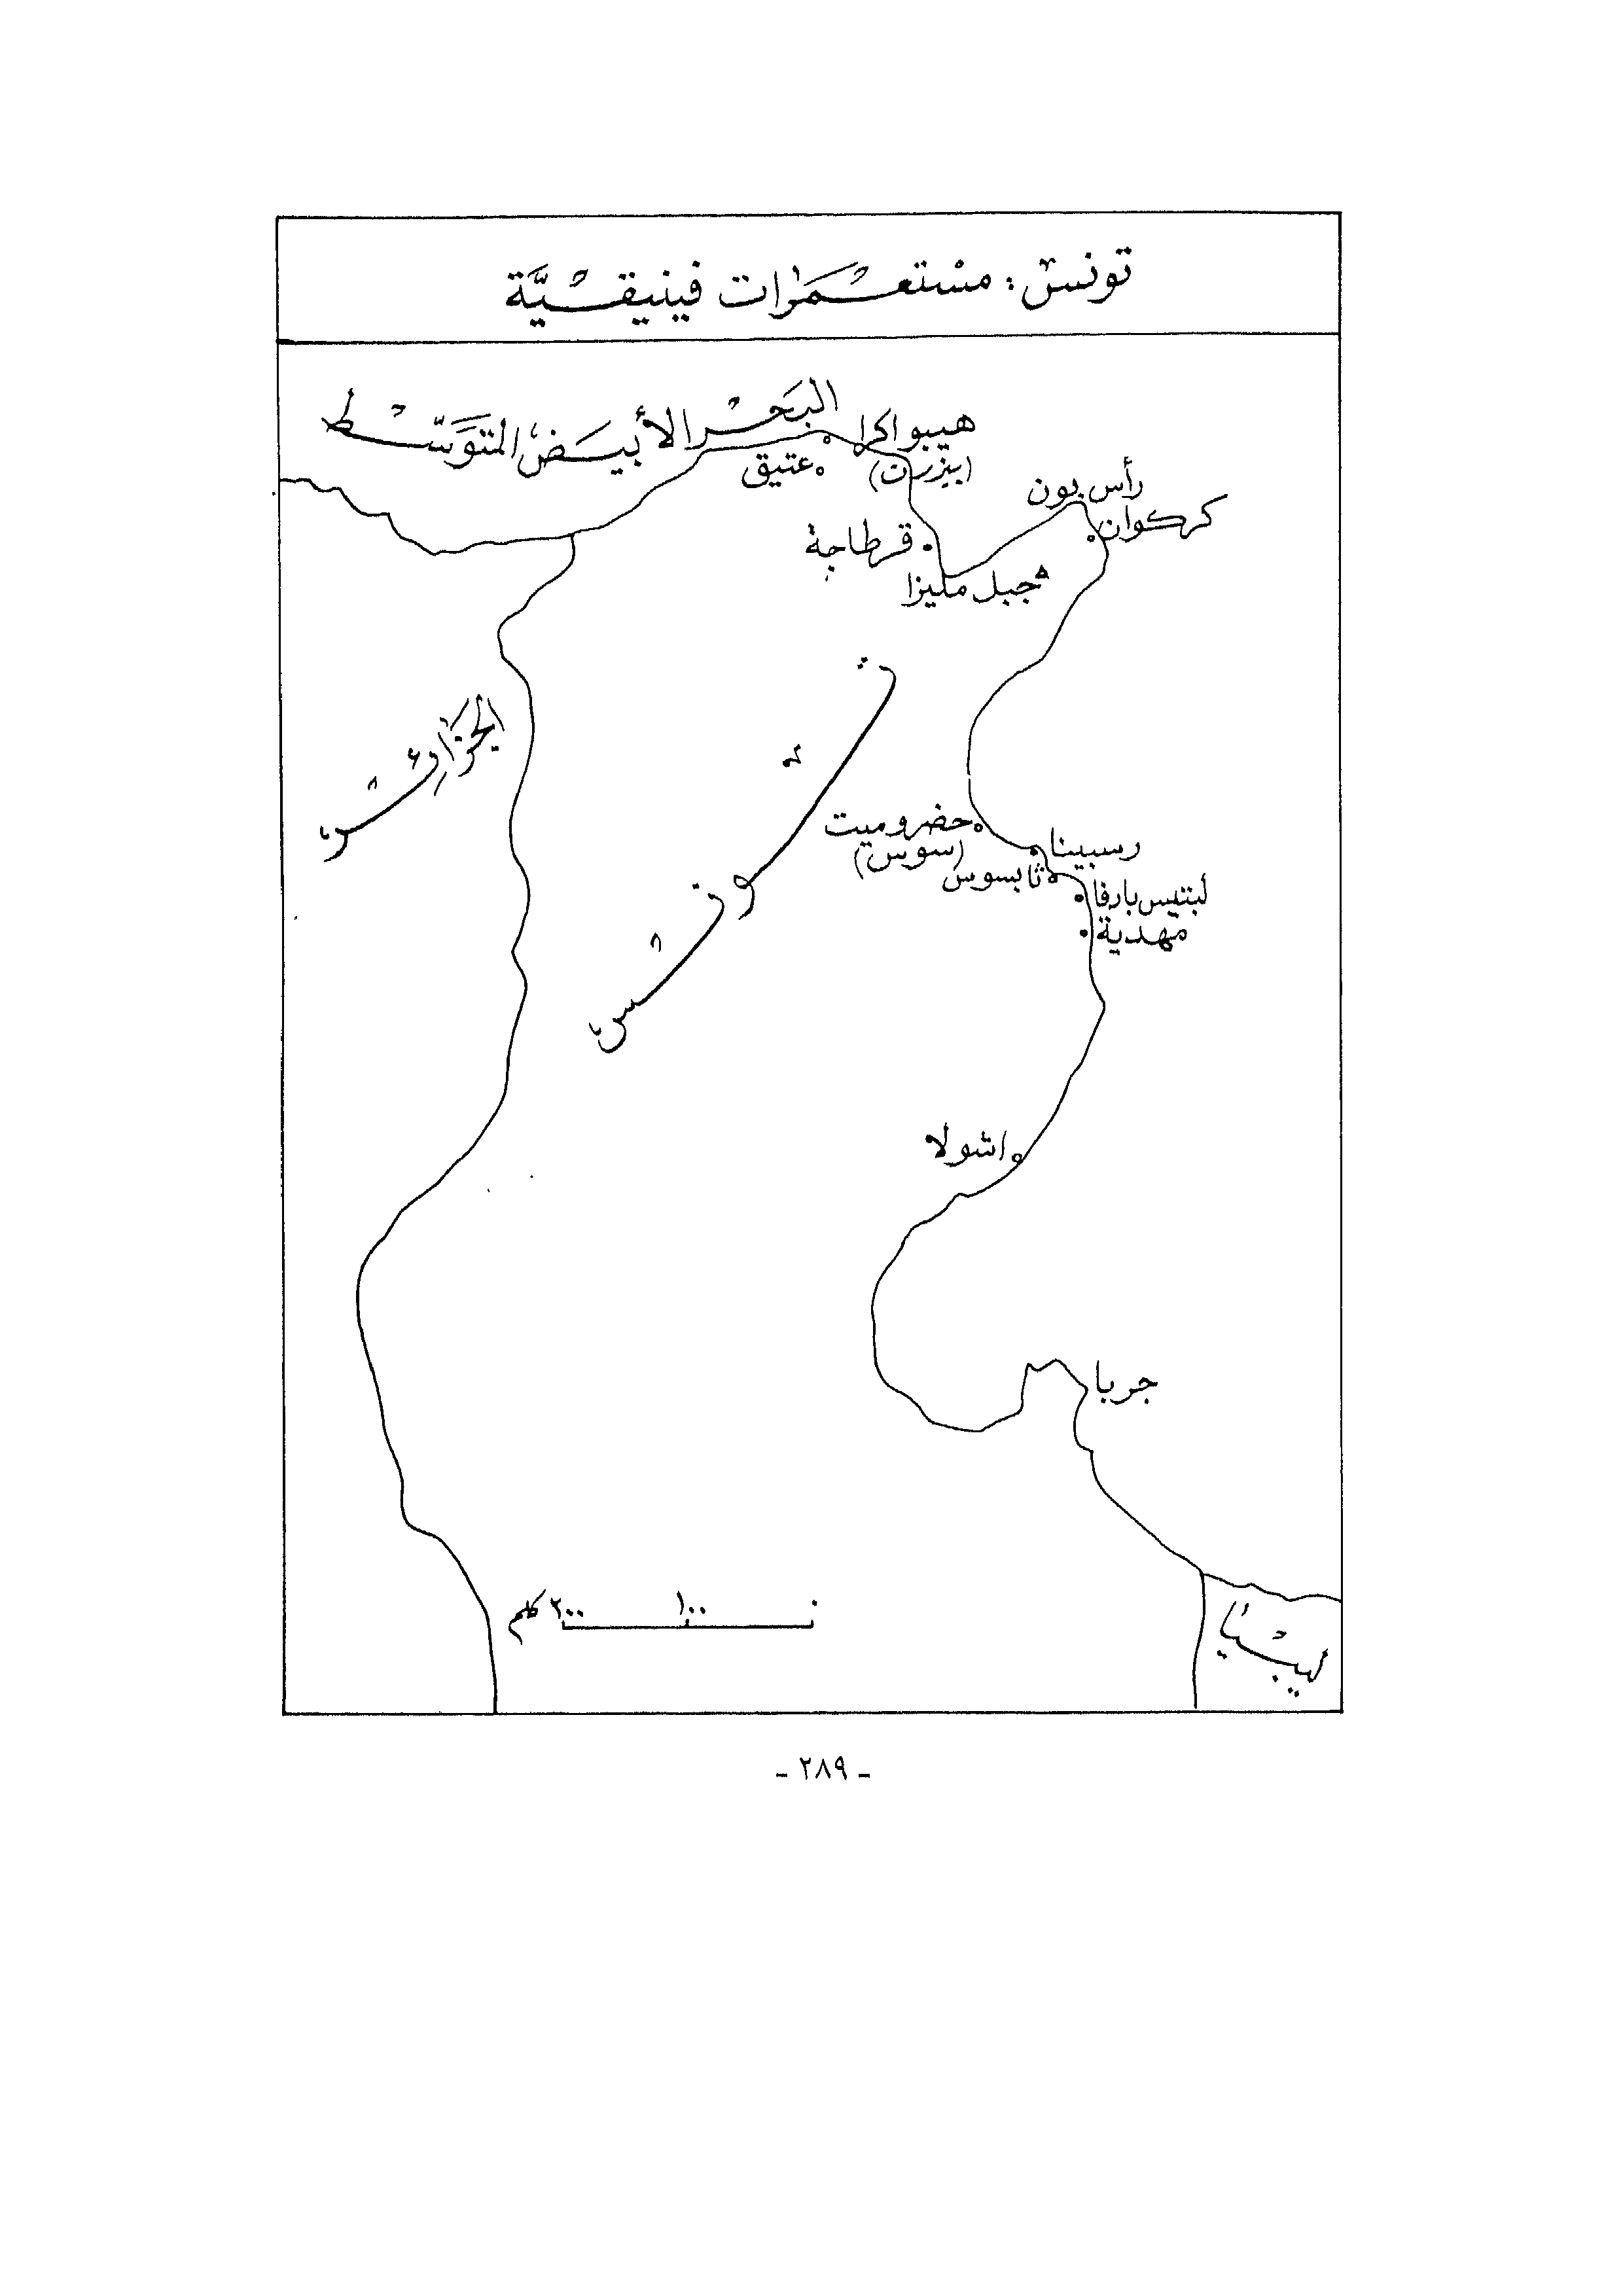 تونس : مستعمرات فينيقيّة
البحر الأبيض المتوسّط
هيبو اكرا
(بيزرت)
عتيق
رأس بون
كركوان
قرطاجة
جبل مليزا
الجزائر
تونس
حضروميت
(سوس)
رسبينا
ثابسوس
لبتيس بارفا
مهدية
اشولا
جربا
٠ ١٠٠ ٢٠٠ كلم
ليبيا
- ٢٨٩ -